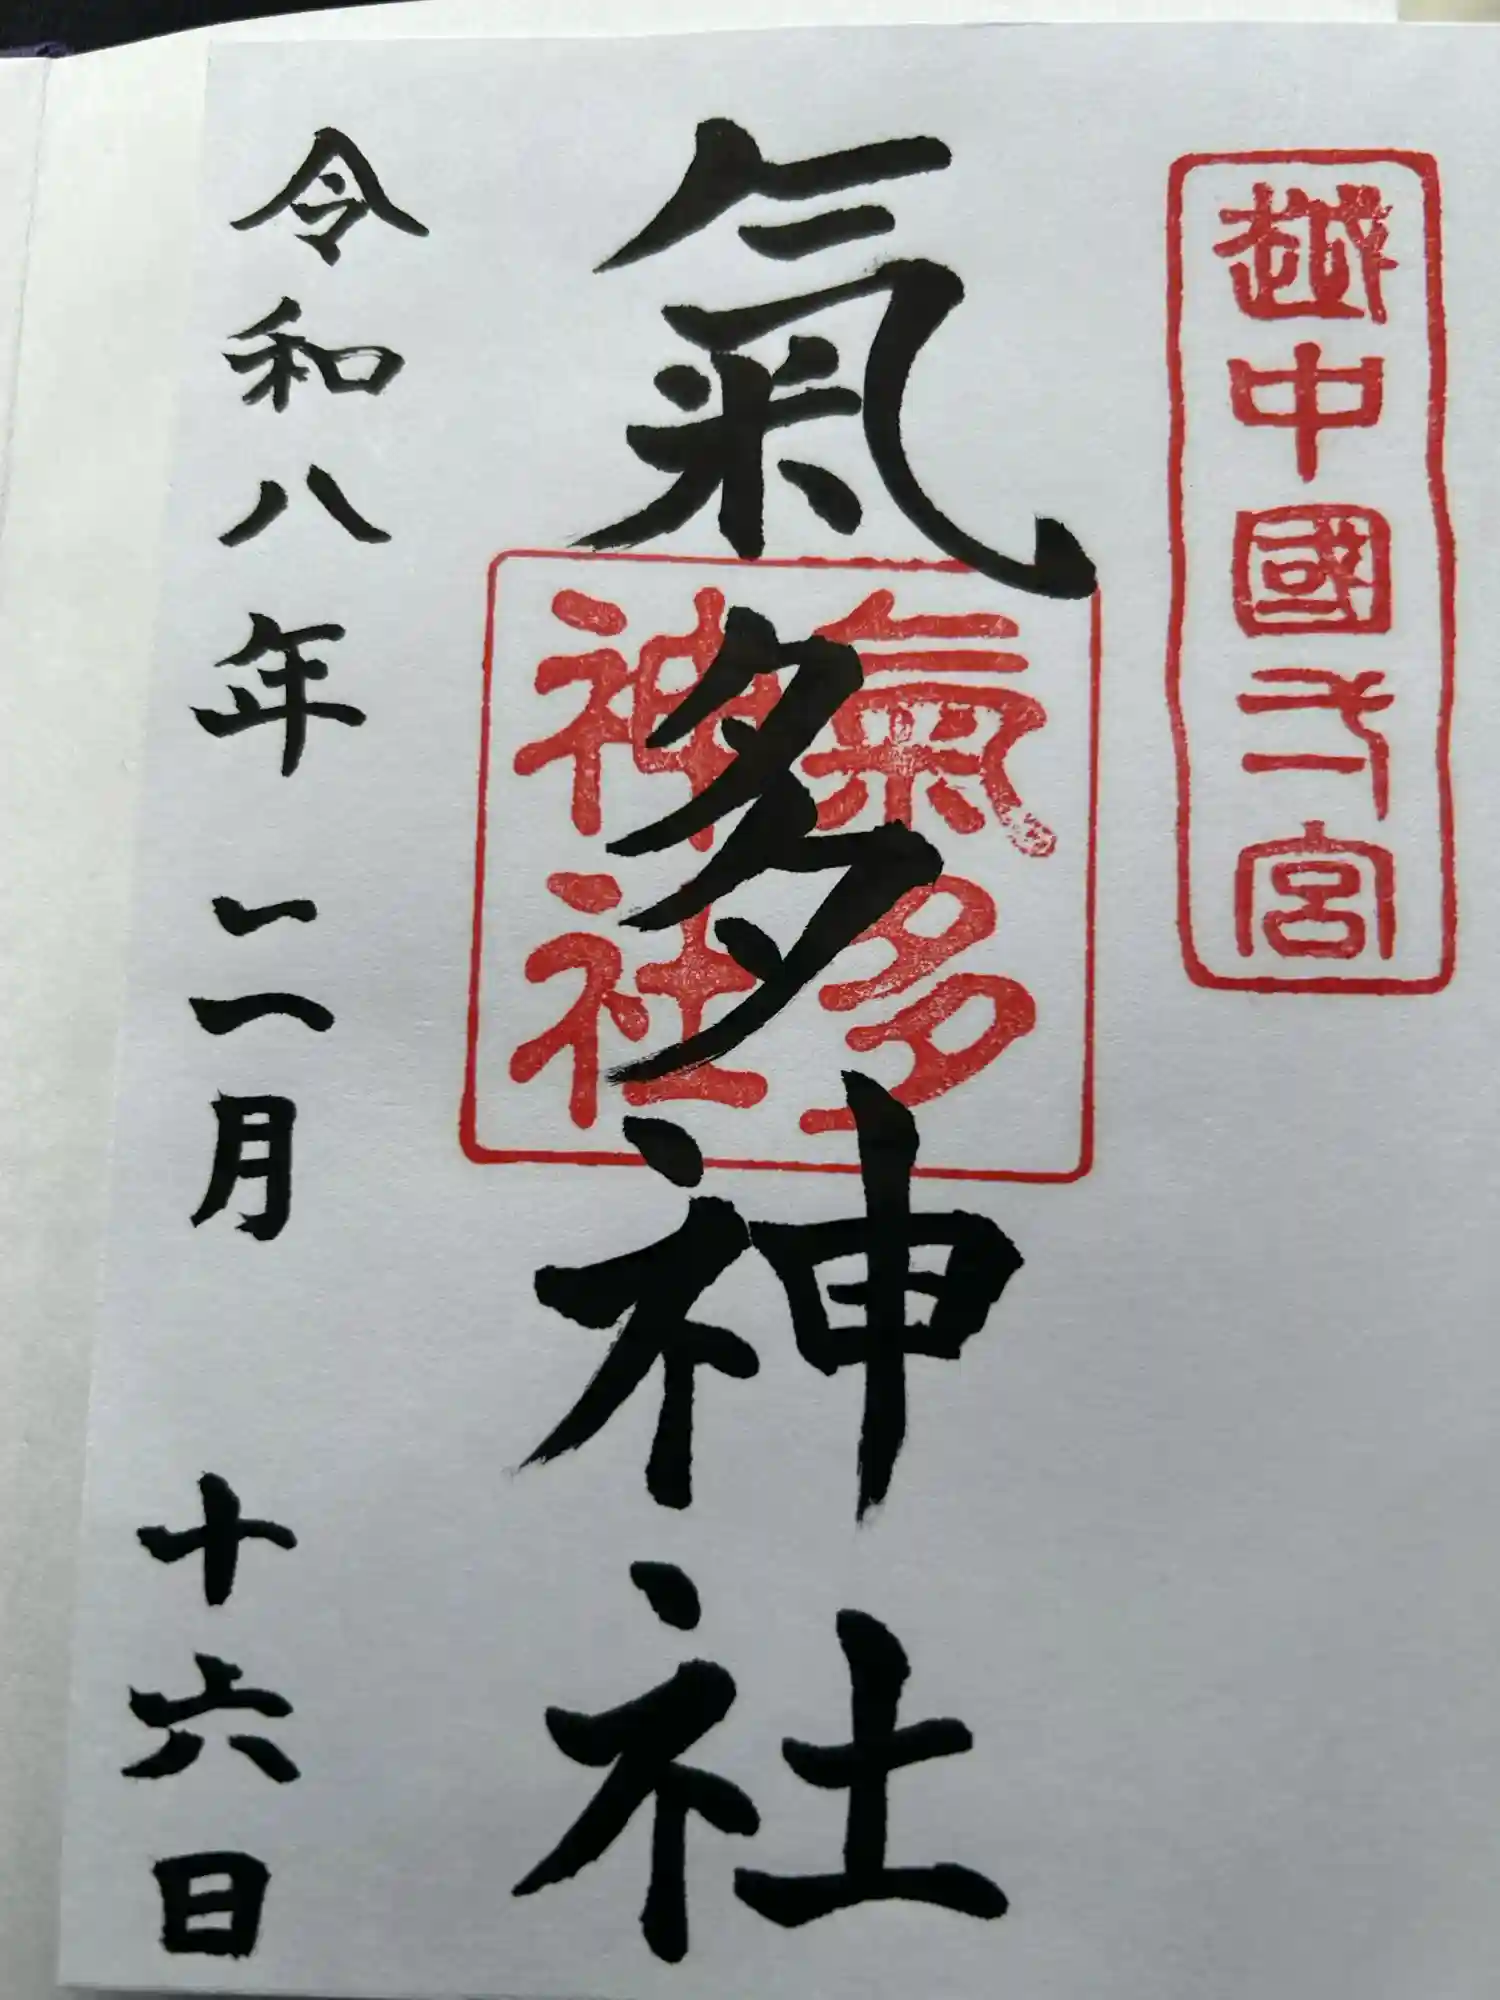 越中國弌宮
氣多神社
氣多
神社
令和八年 二月 十六日